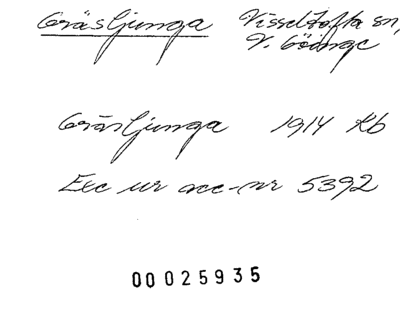 Gräsljunga Visseltofta sn,
V. Göinge
Gräsljunga 1914 Kb
Exc ur acc-nr 5392
00025935